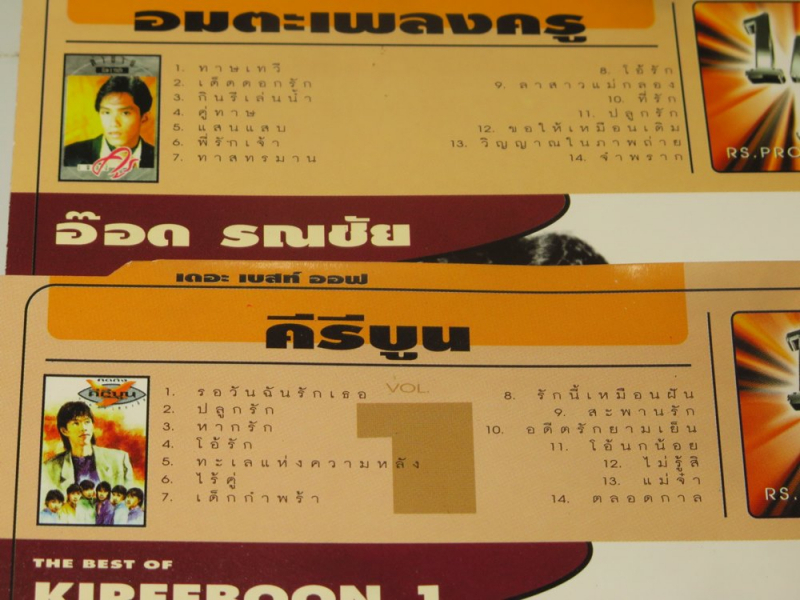 อมตะเพลงครู
1. ทาษเทวี
2. เด็ดดอกรัก
3. กินรีเล่นน้ำ
4. คู่ทาษ
5. แสนแสบ
6. พี่รักเจ้า
7. ทาสทรมาน
8. โอ้รัก
9. ลาสาวแม่กลอง
10. ที่รัก
11. ปลูกรัก
12. ขอให้เหมือนเดิม
13. วิญญาณในภาพถ่าย
14. จำพราก
RS.PRO
อ๊อด รณชัย
เดอะ เบสท์ ออฟ
คีรีบูน
VOL.
1
1. รอวันฉันรักเธอ
2. ปลูกรัก
3. หากรัก
4. โอ้รัก
5. ทะเลแห่งความหลัง
6. ไร้คู่
7. เด็กกำพร้า
8. รักนี้เหมือนฝัน
9. สะพานรัก
10. อดีตรักยามเย็น
11. โอ้นกน้อย
12. ไม่รู้สิ
13. แม่จ๋า
14. ตลอดกาล
คีรีบูน
RS.
THE BEST OF
KIREEBOON 1